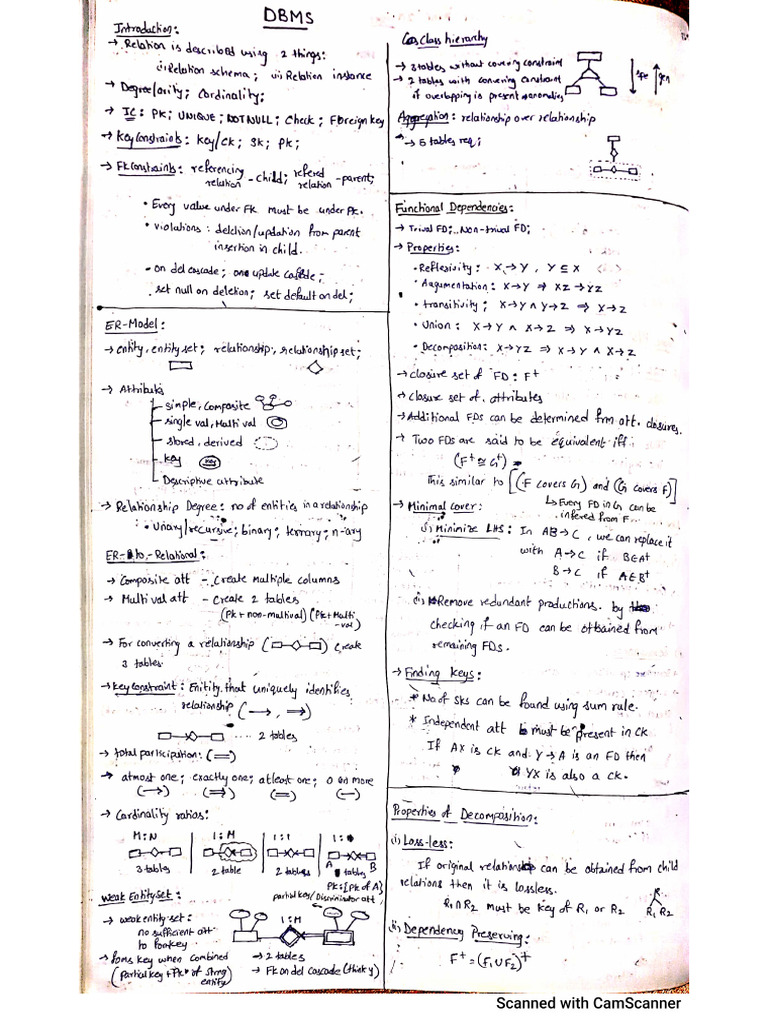 DBMS
Introduction:
→ Relation is described using 2 things:
(i) Relation schema; (ii) Relation instance
→ Degree/arity; Cardinality;
→ IC: PK; UNIQUE; NOT NULL; Check; Foreign key
→ Key Constraints: Key/CK; SK; PK;
→ FK Constraints: referencing relation - child; refered relation - parent;
• Every value under FK must be under PK.
• violations: deletion/updation from parent
insertion in child.
• on del cascade; on update cascade;
set null on deletion; set default on del;
ER-Model:
→ entity, entity set; relationship, relationship set;
→ Attributes
simple, composite
single val, Multi val
stored, derived
key
Key
Descriptive attribute
→ Relationship Degree: no of entities in a relationship
• Unary/recursive; binary; ternary; n-ary
ER-to-Relational:
→ Composite att - Create multiple columns
→ Multi val att - Create 2 tables
(PK + non-multival) (PK + Multi-val)
→ For converting a relationship ( ) create
3 tables.
→ Key constraint: Enitity that uniquely identifies
relationship (→, ⇒)
2 tables
→ total participation: (=)
→ atmost one; exactly one; atleast one; 0 or more
(→) (⇒) (=) (-)
→ Cardinality ratios:
M:N 1:M 1:1 1:
A B
3 tables 2 table 2 tables tables
PK: {PK of A}
Weak Entity Set:
partial key/Discriminator att
→ weak entity set:
no sufficient att
to form key
1:M
→ forms key when combined
(partial key + PK of strng entity)
→ 2 tables
→ FK on del cascade (think y)
Class hierarchy
→ 3 tables without covering constraint
→ 2 tables with convering constraint
if overlapping is present → anomalies
spe gen
Aggregation: relationship over relationship
→ 5 tables req;
Functional Dependencies:
→ Trival FD; Non-trival FD;
→ Properties:
• Reflexivity: X→Y, Y⊆X
• Augumentation: X→Y ⇒ XZ→YZ
• transitivity; X→Y ∧ Y→Z ⇒ X→Z
• Union: X→Y ∧ X→Z ⇒ X→YZ
• Decomposition: X→YZ ⇒ X→Y ∧ X→Z
→ closure set of FD: F⁺
→ closure set of attributes
→ Additional FDs can be determined frm att. closures.
→ Two FDs are said to be equivalent iff:
(F⁺ ≅ G⁺)
This similar to [(F covers G) and (G covers F)]
↳ Every FD in G can be
infered from F.
→ Minimal cover:
(i) Minimize LHS: In AB→C, we can replace it
with A→C if B∈A⁺
B→C if A∈B⁺
(ii) Remove redundant productions. by
checking if an FD can be obtained from
remaining FDs.
→ Finding Keys:
* No of SKs can be found using sum rule.
* Independent att must be present in CK
If AX is CK and Y→A is an FD then
YX is also a CK.
Properties of Decomposition:
(i) Loss-less:
If original relation can be obtained from child
relations then it is lossless.
R₁∩R₂ must be key of R₁ or R₂
R
R₁ R₂
(ii) Dependency Preserving:
F⁺ = (F₁∪F₂)⁺
Scanned with CamScanner